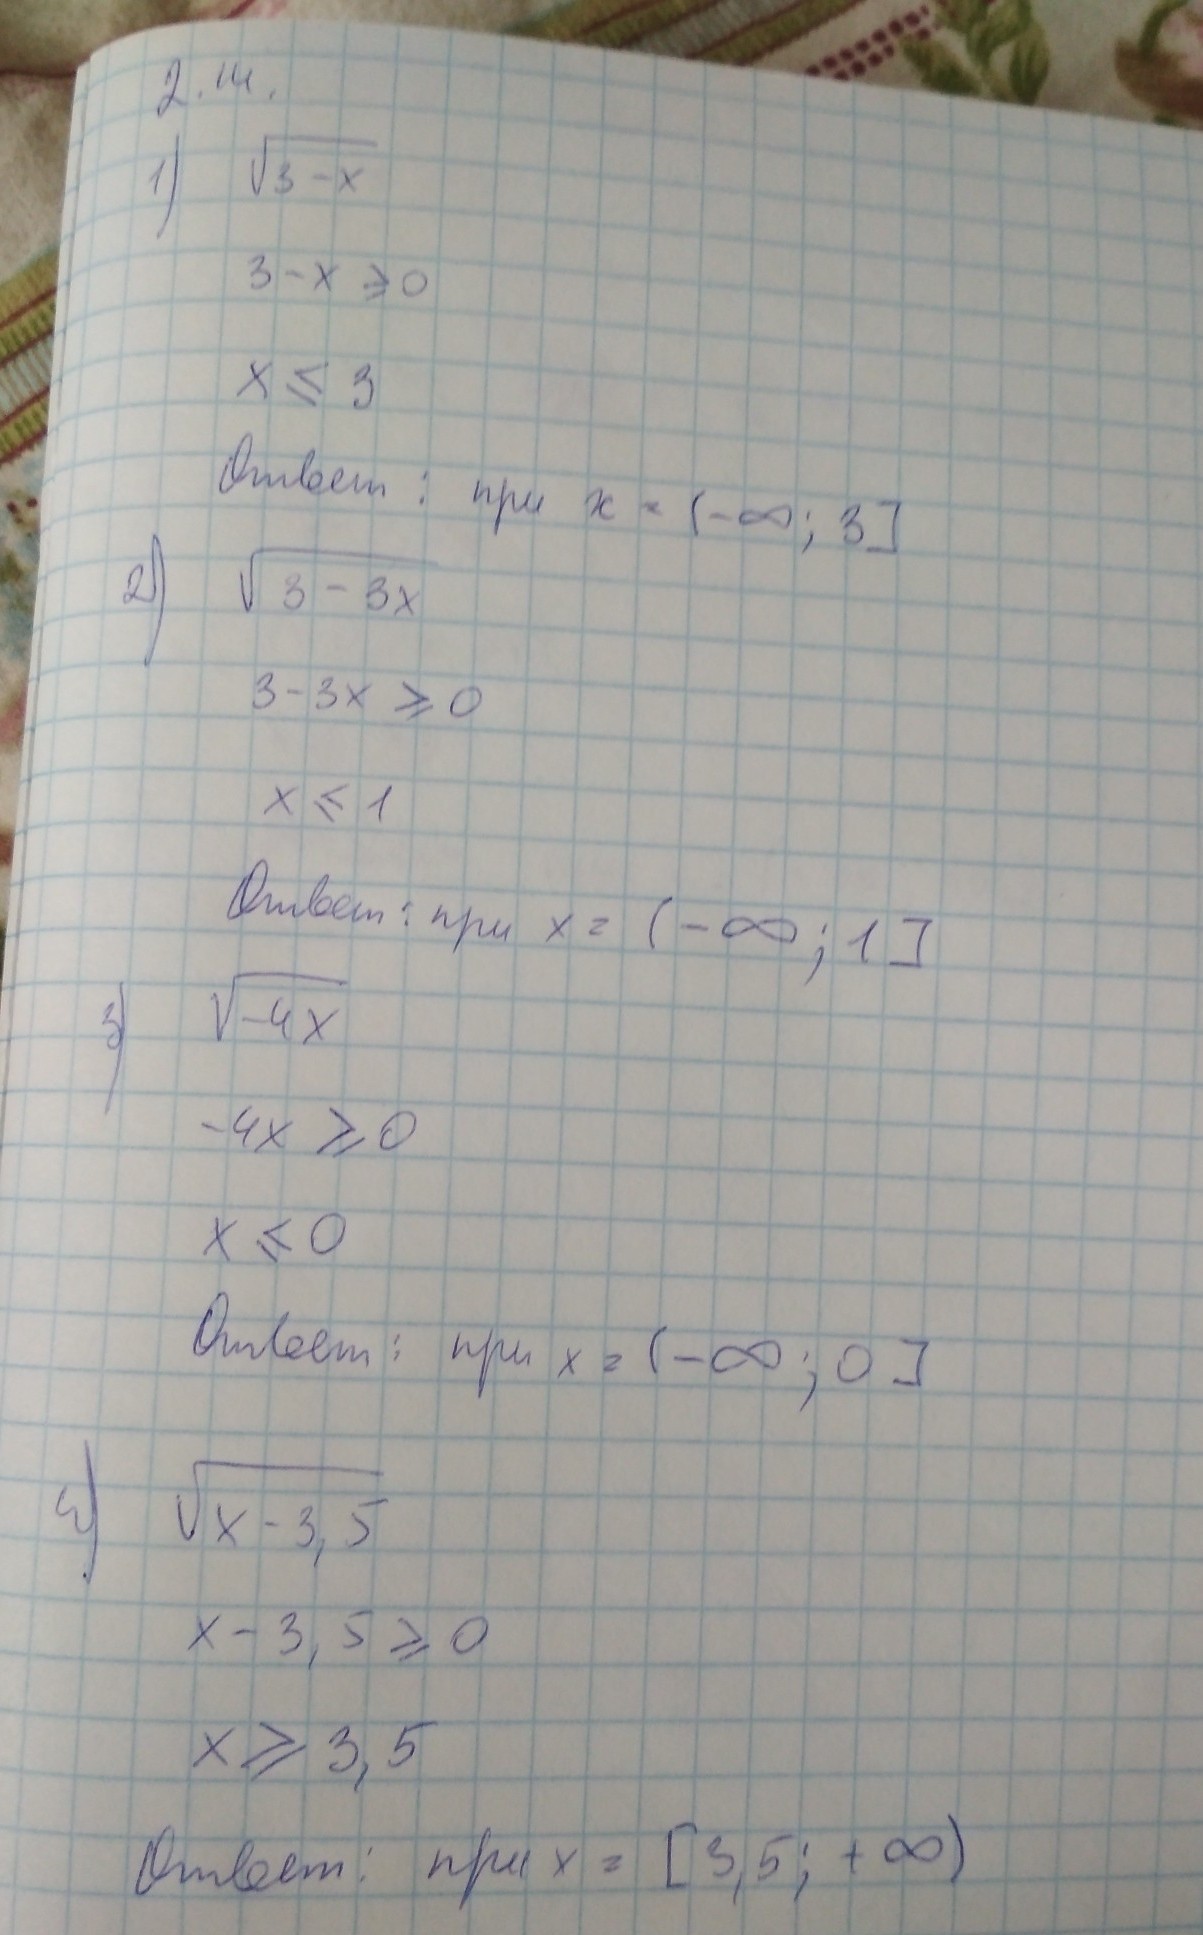 2.14.
1) √3-x
3-x ⩾0
x ⩽ 3
Ответ: при x = (-∞; 3]
2) √3-3x
3-3x ⩾ 0
x ⩽ 1
Ответ: при x = (-∞; 1]
3) √-4x
-4x ⩾ 0
x ⩽ 0
Ответ: при x = (-∞; 0]
4) √x-3,5
x-3,5 ⩾ 0
x ⩾ 3,5
Ответ: при x = [3,5; +∞)